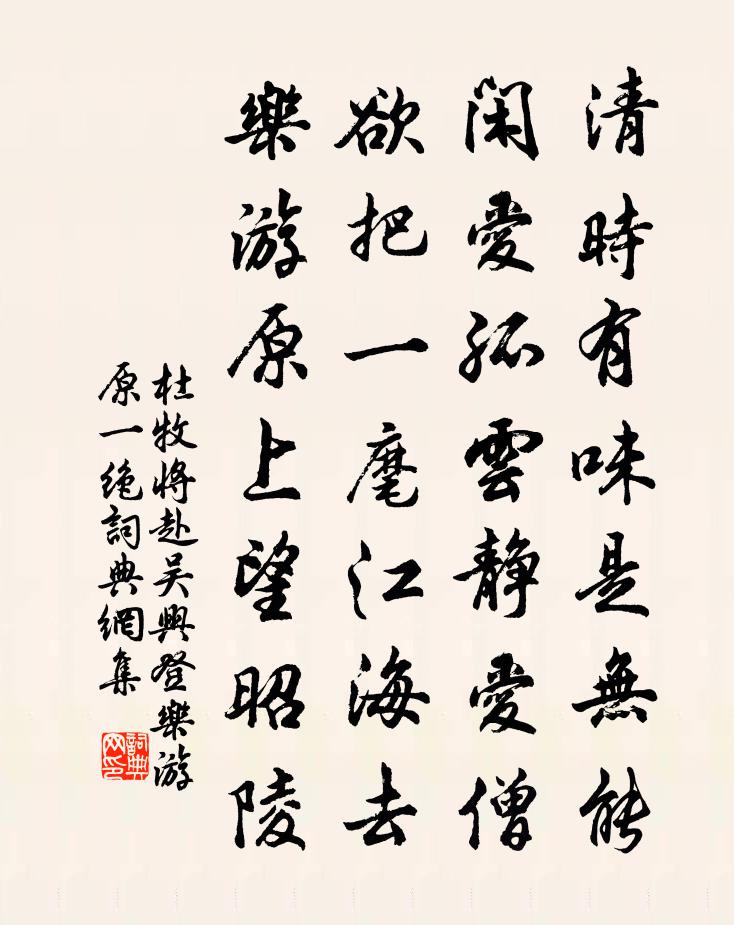 清時有味是無能
閑愛孤雲靜愛僧
欲把一麾江海去
樂游原上望昭陵
杜牧將赴吴興登樂游
原一絶詞典網集
詞典
网印